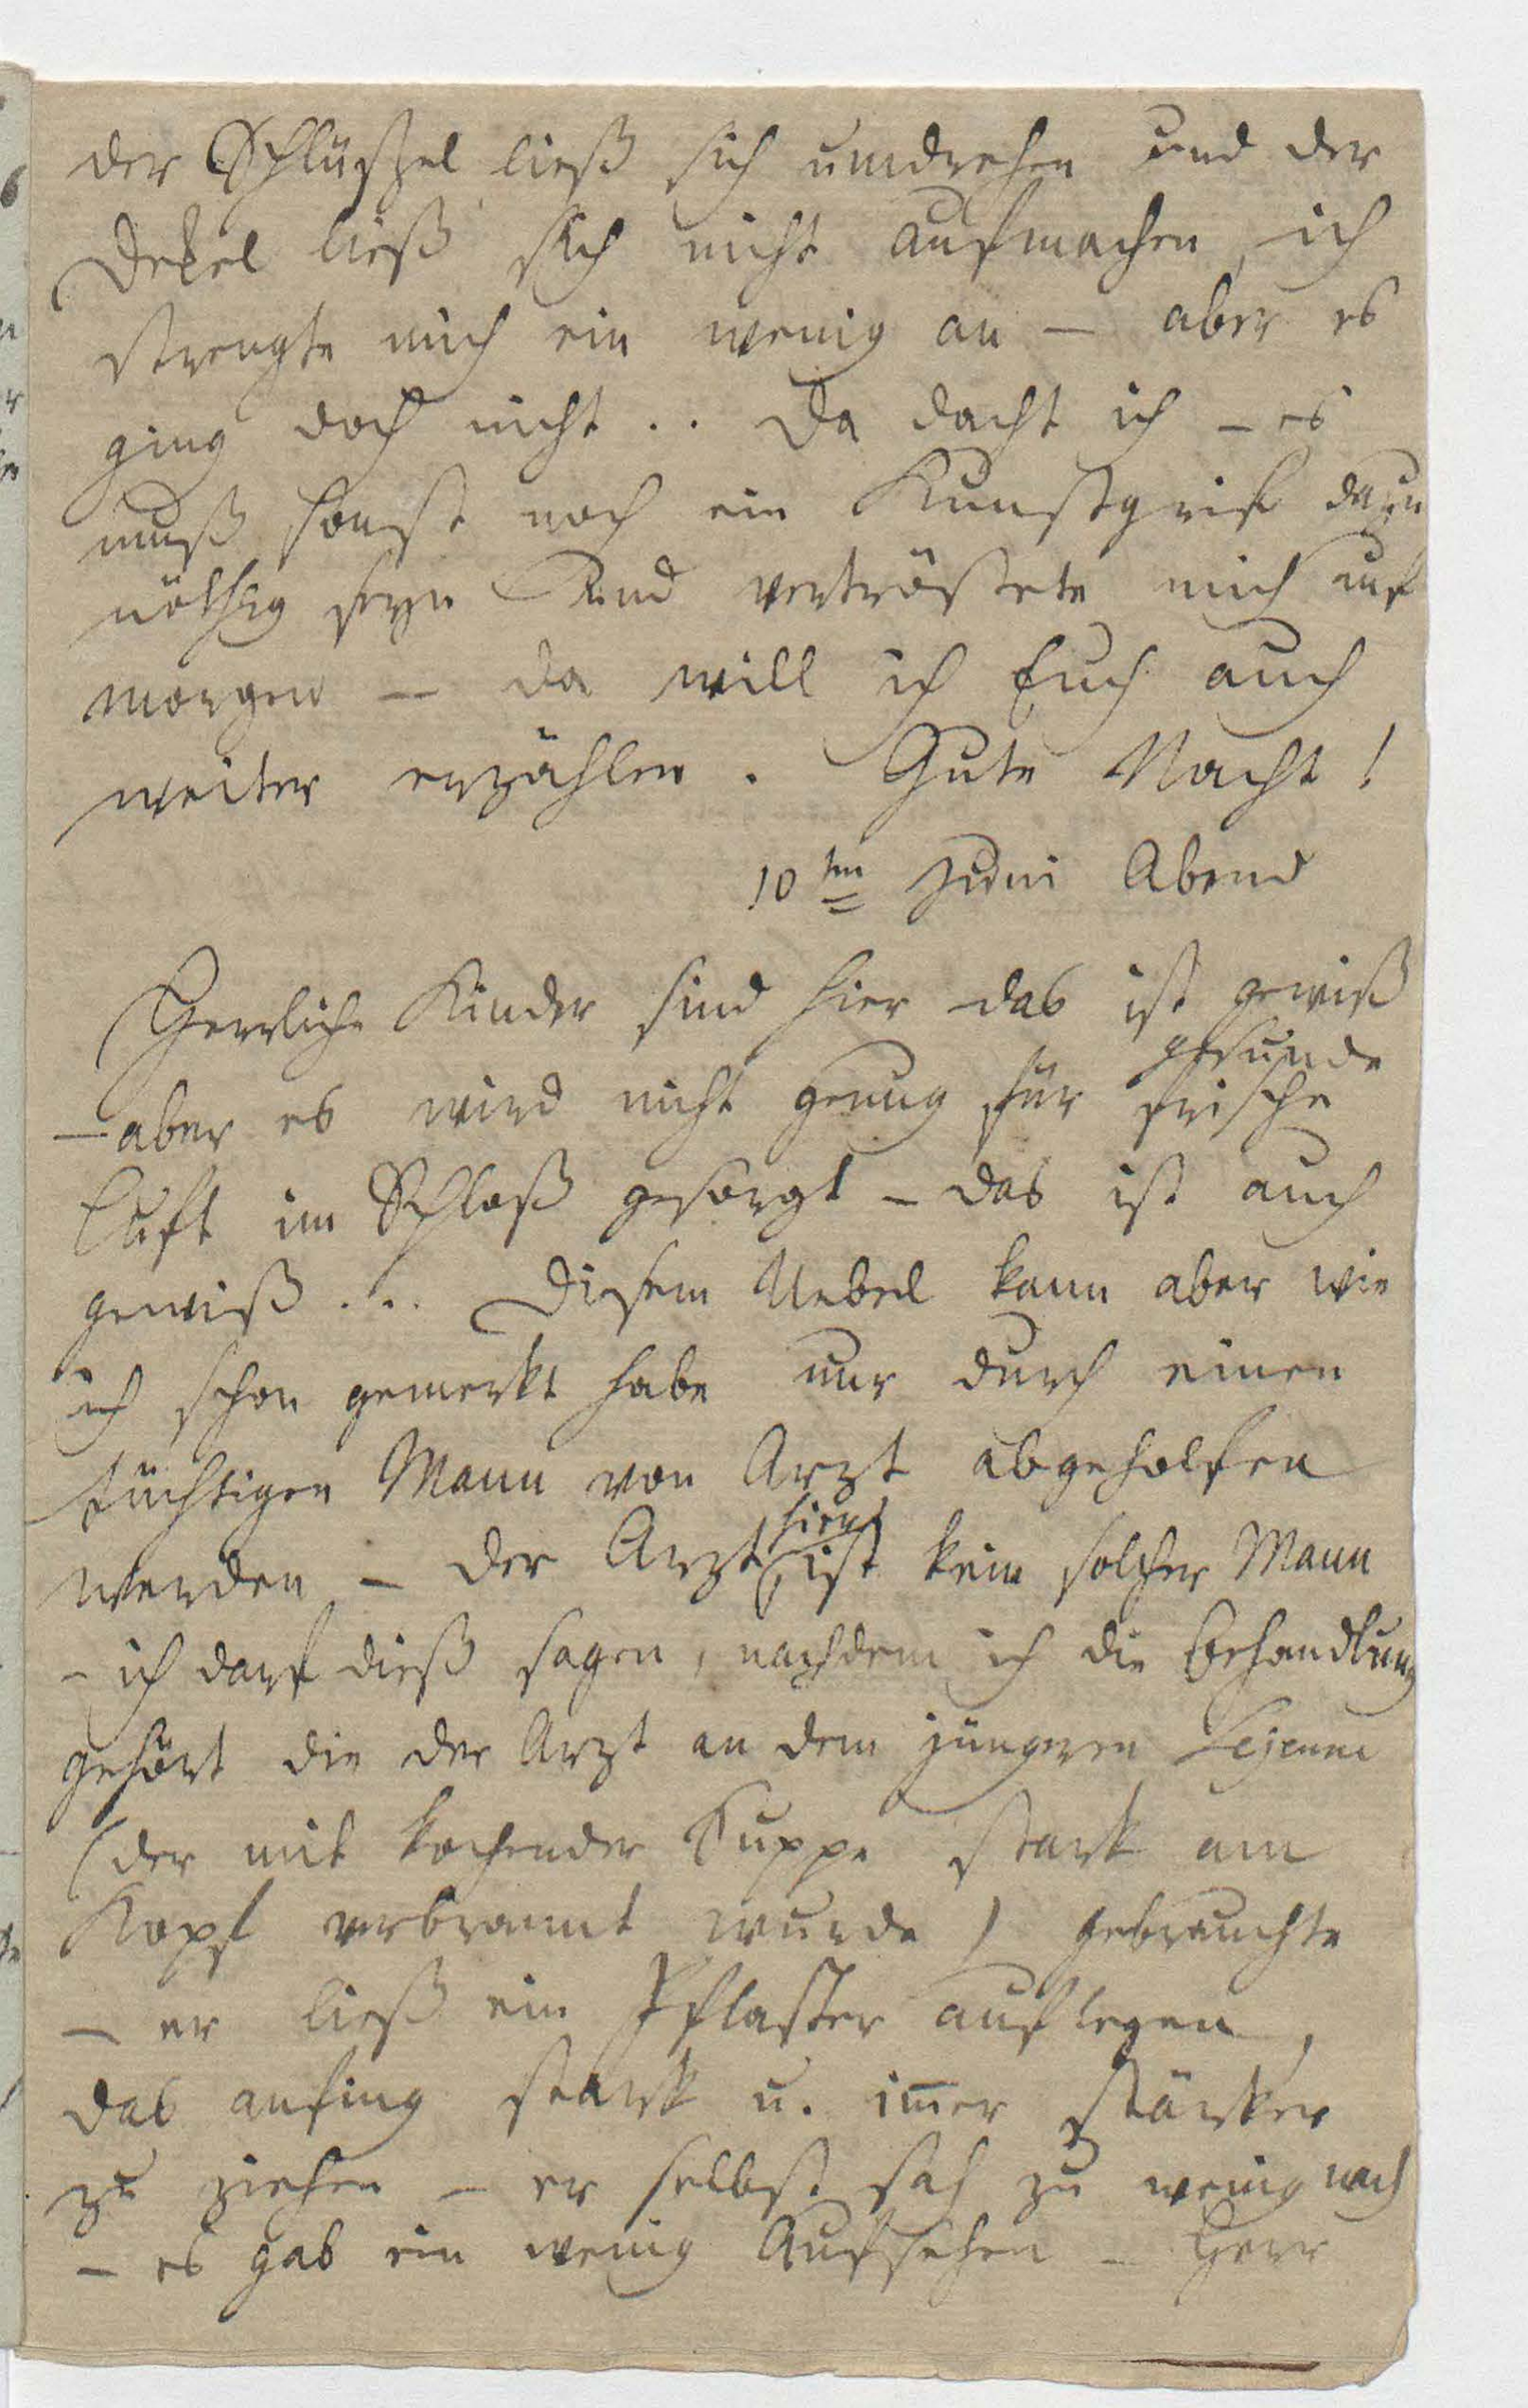 der Schlüßzel ließ sich umdrehen und der
Dekel ließ sich nicht aufmachen, ich
strengte mich ein wenig an – aber es
ging doch nicht .. Da dacht ich – es
muß sonst noch ein Kunstgrif dazu
nöthig seyn Und vertröstete mich auf
morgen – da will ich Euch auch
weiter erzählen. Gute Nacht!
10ten Juni Abend
Herrliche Kinder sind hier das ist gewiß
gesunde
– aber es wird nicht genug für frische
Luft im Schloß gesorgt – das ist auch
gewiß ... Diesem Uebel kann aber wie
ich schon gemerkt habe nur durch einen
tüchtigen Mann von Arzt abgeholfen
hier
werden – der Arzt ist kein solcher Mann
– ich darf dieß sagen, nachdem ich die Behandlung
gehört die der Arzt an dem jüngeren Lejeune
(der mit kochender Suppe stark am
Kopf verbrannt wurde) gebrauchte
– er ließ ein Pflaster auflegen,
das anfing stark u. im̅er stärker
zu ziehen – er selbst sah zu wenig nach
– es gab ein wenig Aufsehen – Herr